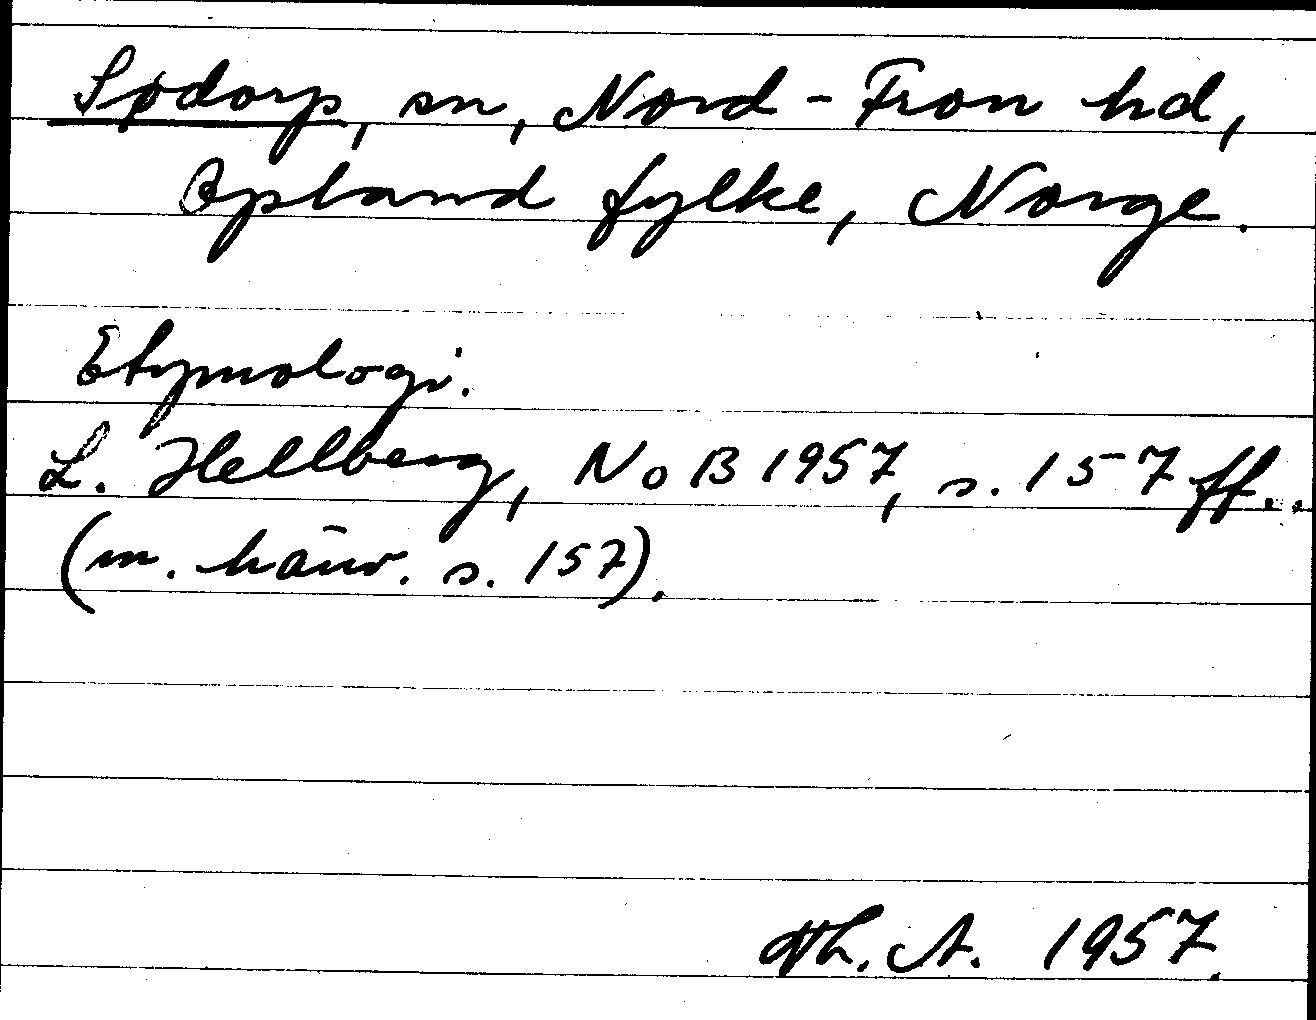 Sødorp, sn, Nord-Fron hd,
Opland fylke, Norge.
Etymologi.
L. Hellberg, NoB 1957, s. 157 ff..
(m. hänv. s. 157).
Th. A. 1957.